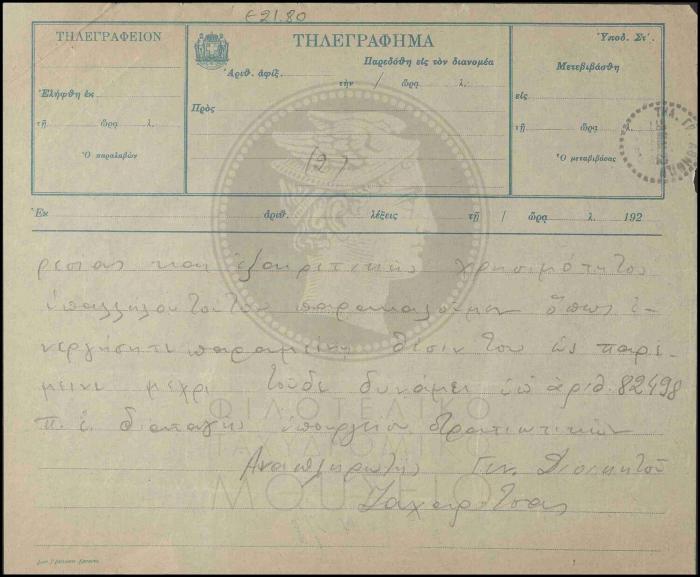 €21.80
ΤΗΛΕΓΡΑΦΕΙΟΝ
Ἐλήφθη ἐκ
τῇ ὥρᾳ λ.
Ὁ παραλαβών
ΤΗΛΕΓΡΑΦΗΜΑ
Παρεδόθη εἰς τὸν διανομέα
Ἀριθ. ἀφίξ. τὴν / ὥρᾳ λ.
Πρὸς
(2)
Ὑποδ. Στ΄.
Μετεβιβάσθη
εἰς
τῇ ὥρᾳ λ.
Ὁ μεταβιβάσας
Ἐκ ἀριθ. λέξεις τῇ / ὥρᾳ λ. 192
ρεσίας και ἐξαιρετικῆς χρησιμότητος
ὑπαλλήλου τούτου παρακαλοῦμεν ὅπως ἐ-
νεργήσητε παραμείνῃ θέσιν του ὡς παρέ-
μεινε μέχρι τοῦδε δυνάμει ὑπ ἀριθ. 82498
π. ἐ. διαταγῆς ὑπουργείου Στρατιωτικῶν
Αναπληρωτής Γεν. Διοικητοῦ
ΦΙΛΟΤΕΛΙΚΟ
ΤΑΧΥΔΡΟΜΙΚΟ
ΜΟΥΣΕΙΟ